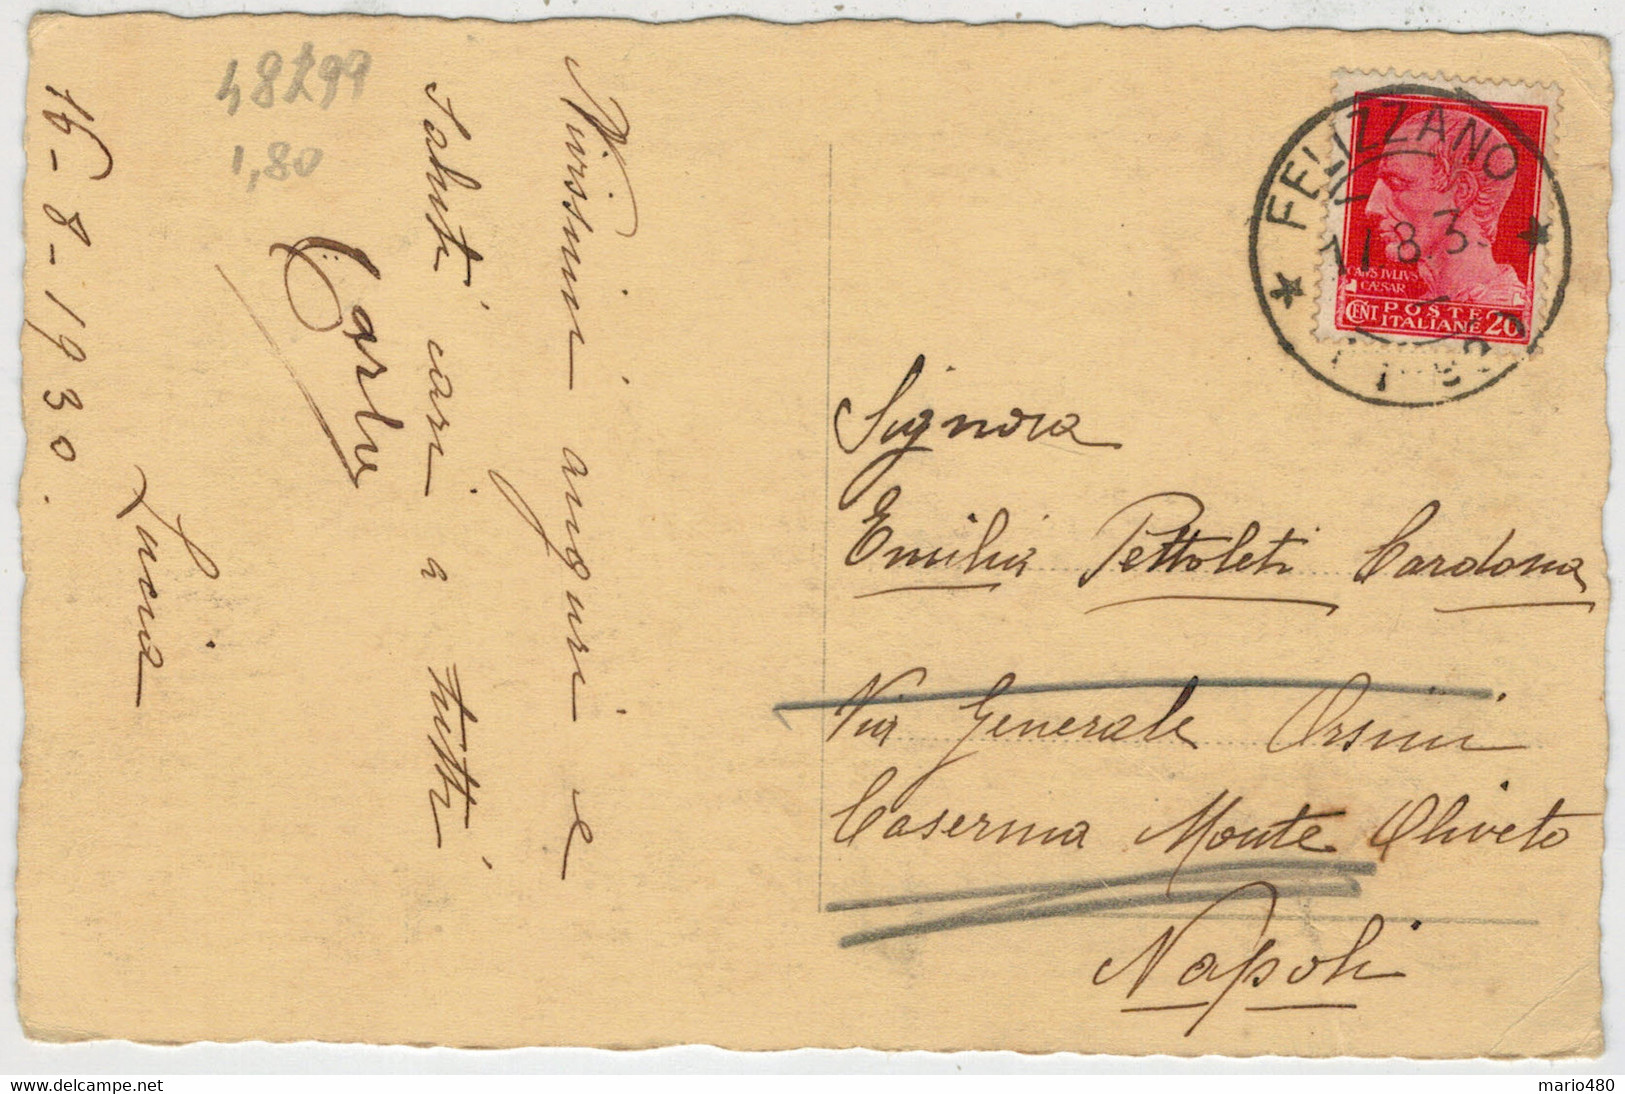 48299
1,80
Vivissimi auguri e
saluti cari a tutti
Carlo
Lucia
16-8-1930.
FELIZZANO
17.8.3
CAIVS IVLIVS
CÆSAR
CENT POSTE ITALIANE 20
Signora
Emilia Pettoleti Cardona
Via Generale Orsini
Caserma Monte Oliveto
Napoli
mario480